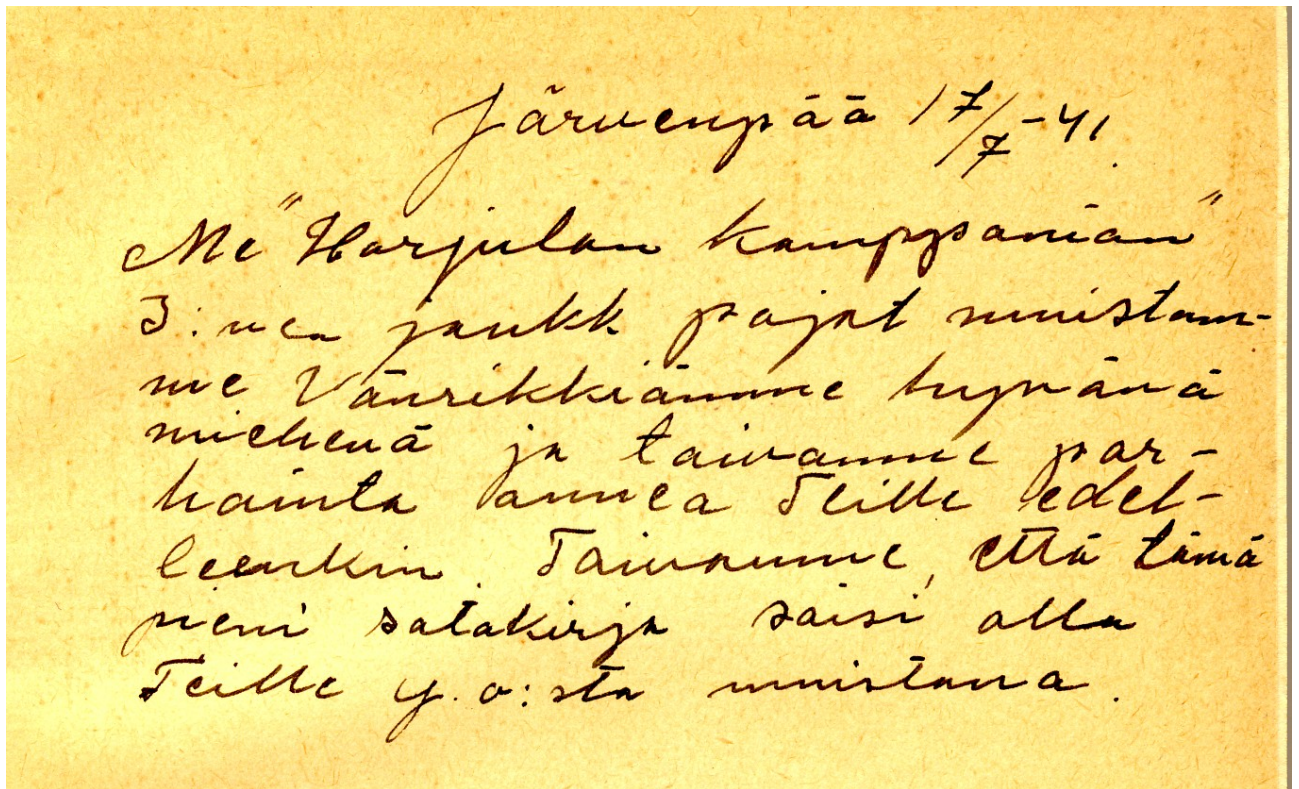 Järvenpää 17/7-41.
Me "Harjulan komppanian"
3:nen joukk pojat muistam-
me Vänrikkiämme hyvänä
miehenä ja toivomme par-
hainta onnea Teille edel-
leenkin. Toivomme, että tämä
pieni sotakirja saisi olla
Teille y.o:sta muistona.